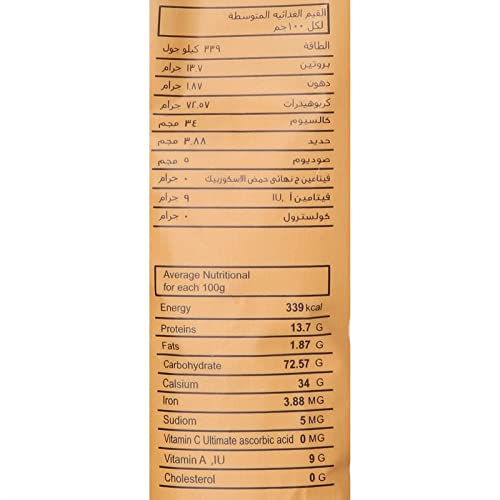 القيم الغذائيه المتوسطة
لكل ١٠٠جم
الطاقة ٣٣٩ كيلو جول
بروتين ١٣.٧ جرام
دهون ١.٨٧ جرام
كربوهيدرات ٧٢.٥٧ جرام
كالسيوم ٣٤ مجم
حديد ٣.٨٨ مجم
صوديوم ٥ مجم
فيتامين ج نهائي حمض الاسكوربيك ٠ جرام
فيتامين أ ,IU ٩ جرام
كولسترول ٠ جرام
Average Nutritional
for each 100g
Energy 339 kcal
Proteins 13.7 G
Fats 1.87 G
Carbohydrate 72.57 G
Calsium 34 G
Iron 3.88 MG
Sudiom 5 MG
Vitamin C Ultimate ascorbic acid 0 MG
Vitamin A ,IU 9 G
Cholesterol 0 G